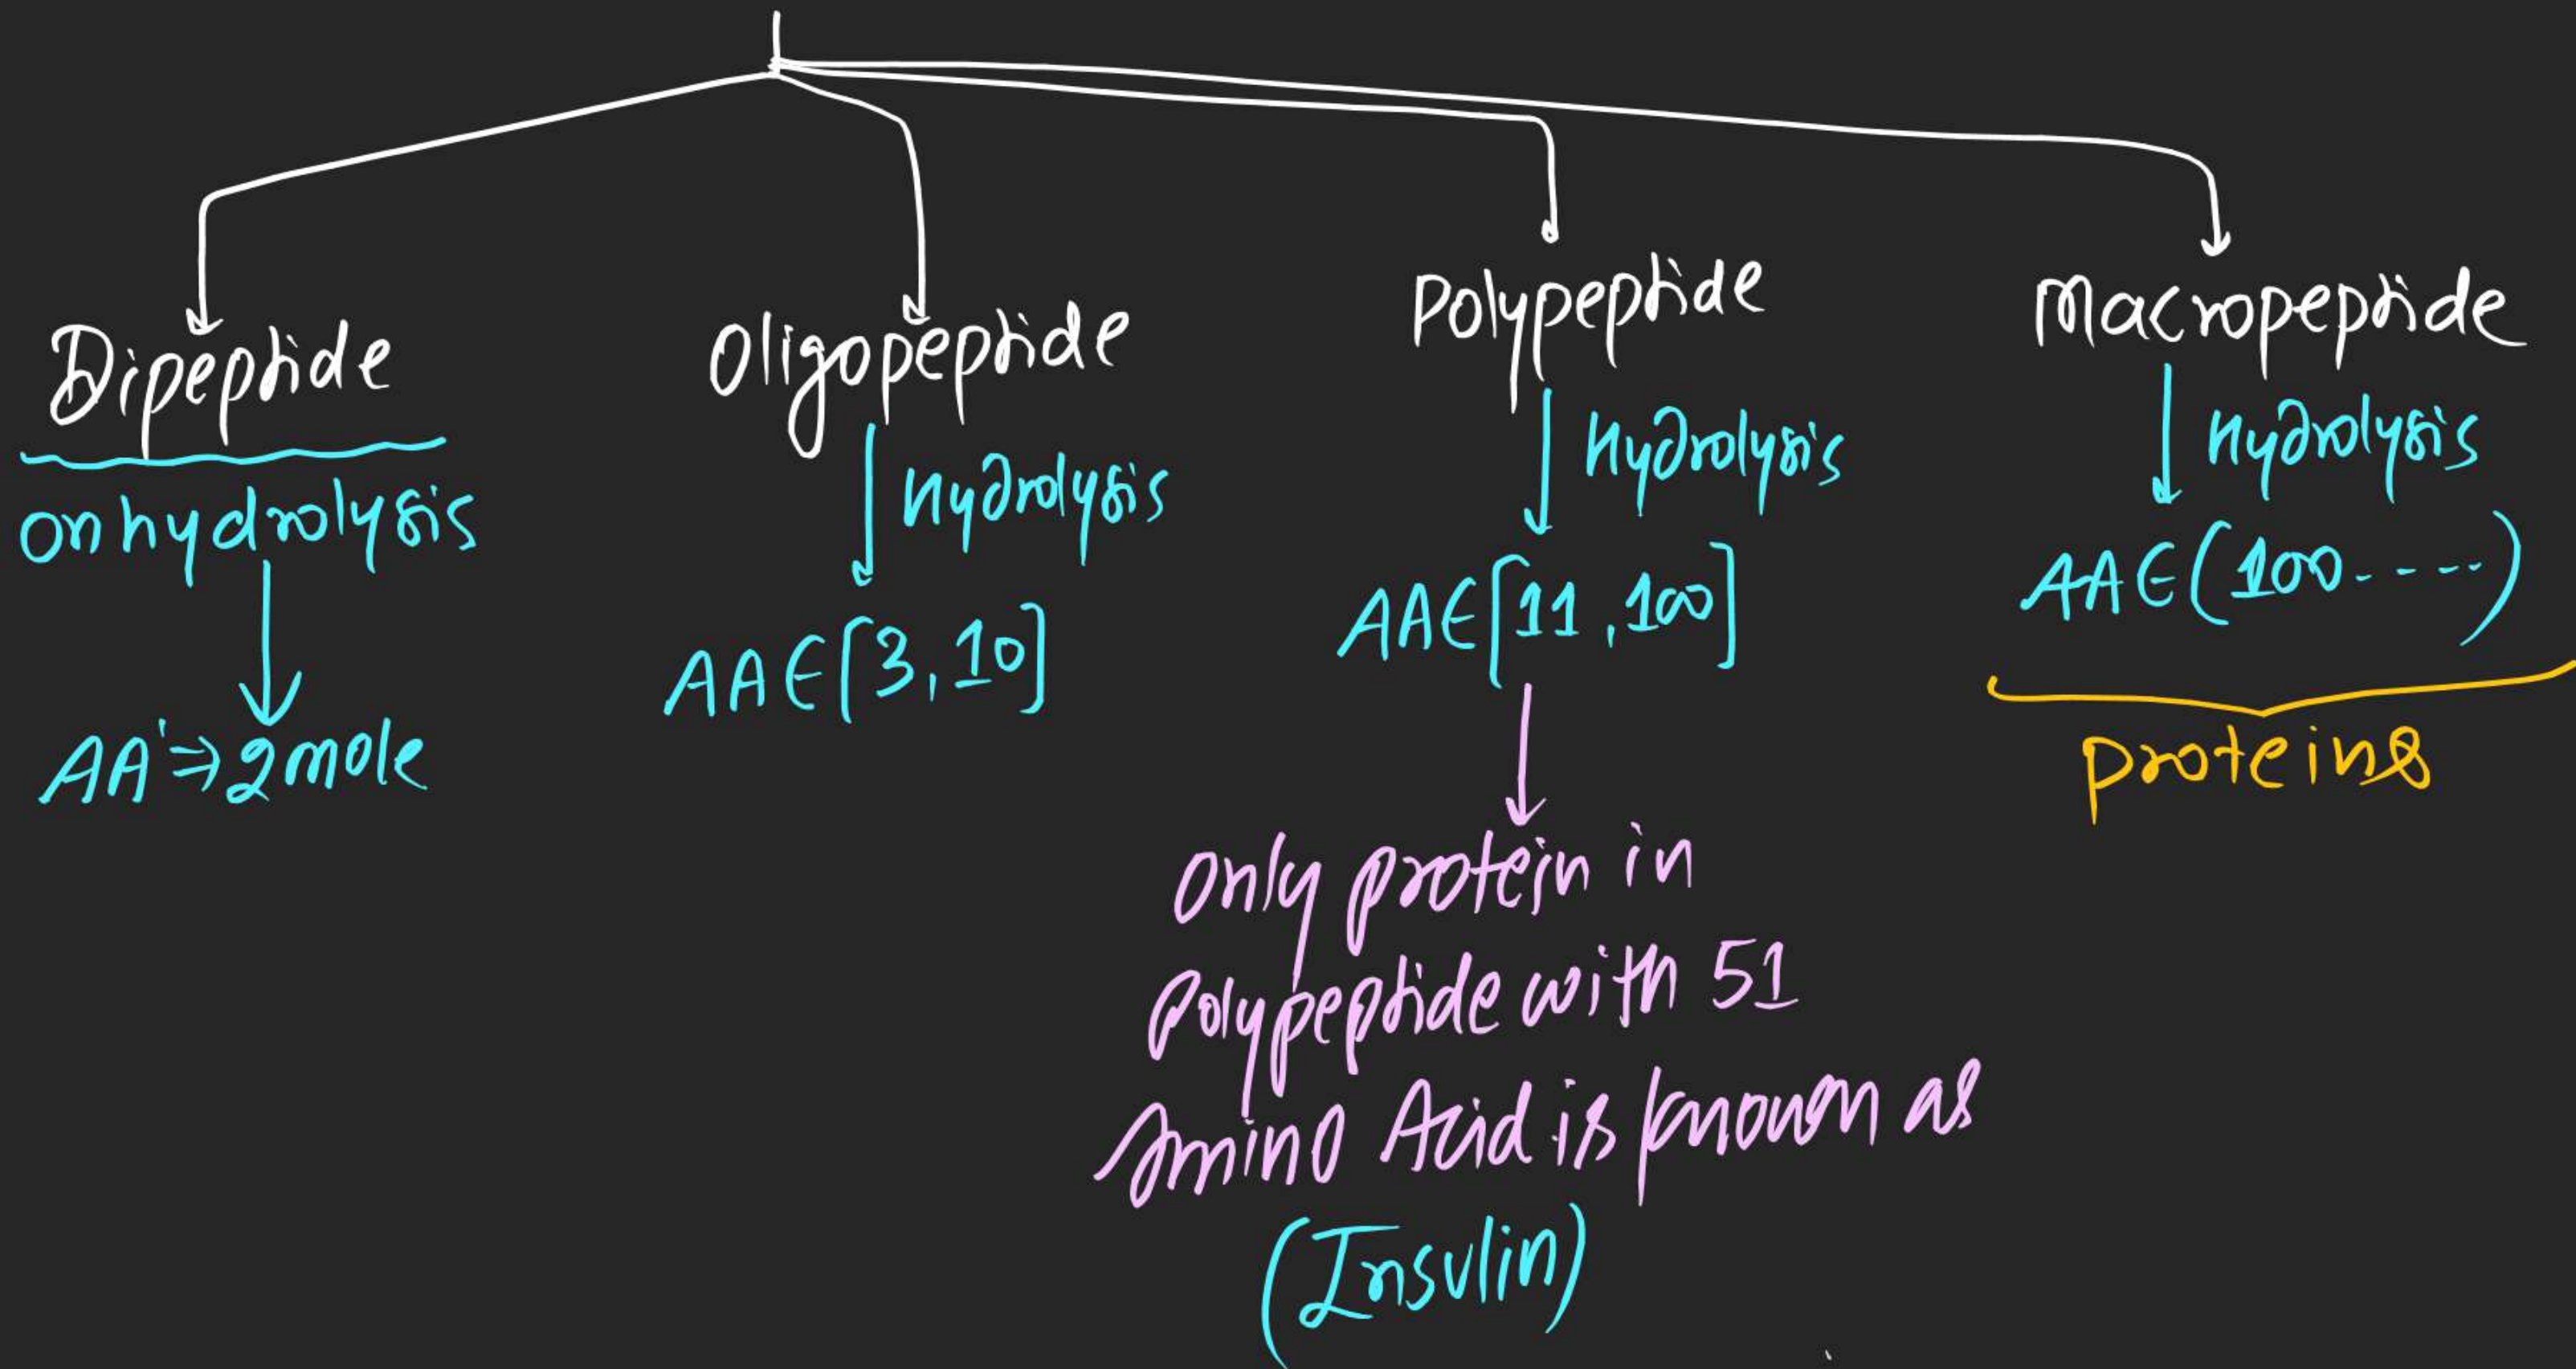 Dipeptide
on hydrolysis
AA ⇒ 2 mole
Oligopeptide
hydrolysis
AA ∈ [3, 10]
Polypeptide
hydrolysis
AA ∈ [11, 100]
Only protein in
polypeptide with 51
Amino Acid is known as
(Insulin)
Macropeptide
hydrolysis
AA ∈ (100 - - - -)
proteins